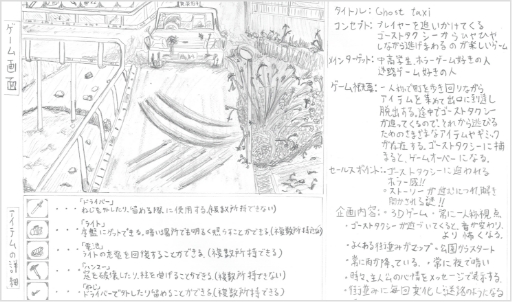 ゲーム画面
タイトル: Ghost taxi
コンセプト: プレイヤーを追いかけてくる
ゴーストタクシーからひやひや
しながら逃げまわるのが楽しいゲーム
メインターゲット: 中高学生、ホラーゲーム好きの人
迷路ゲーム好きの人
ゲーム概要: 一人称で町を歩き回りながら
アイテムを集めて出口に到達し
脱出する。途中でゴーストタクシー
が追ってくるので、それから逃げる
ためのさまざまなアイテムやギミック
が存在する。ゴーストタクシーに捕
まると、ゲームオーバーになる。
セールスポイント: ゴーストタクシーに追われる
ホラー感!!
ストーリーが進むにつれ、謎が
明かされる謎!!
企画内容: ・3Dゲーム ・常に一人称視点
・ゴーストタクシーが近づいてくると、音が変わり、
より怖くなる。
・よくある街並みがマップ ・公園からスタート
・常に雨が降っている。 ・常に夜で暗い
・時々、主人公の心情をメッセージで表示する。
・街並みに毎日変化し迷路のようになる
アイテムの詳細
・・・「ドライバー」
ねじをはずしたり、留める様に使用する。(複数所持できない)
・・・「ライト」
序盤にゲットできる。暗い場所を明るく照らすことができる(複数所持不可)
・・・「電池」
ライトの充電を回復することができる。(複数所持できる)
・・・「ハンマー」
窓を破壊したり、柱を曲げることができる(複数所持できない)
・・・「ねじ」
ドライバーで外したり留めることができる(複数所持できる)